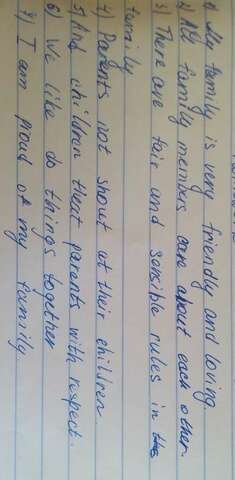 1) My family is very friendly and loving.
2) All family members care about each other.
3) There are fair and sensible rules in the
family
4) Parents not shout at their children.
5) And children treat parents with respect.
6) We like do things together
7) I am proud of my family